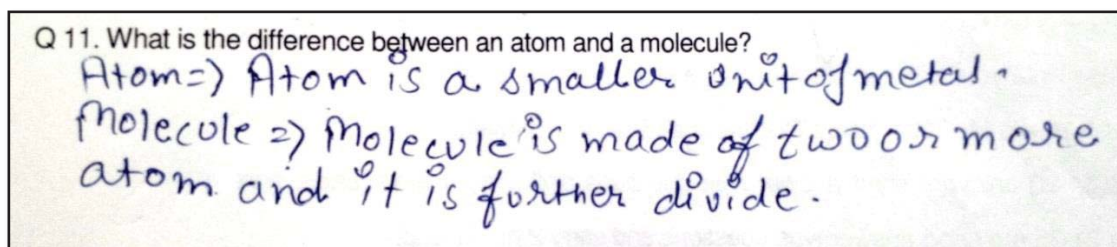 Q 11. What is the difference between an atom and a molecule?
Atom=) Atom is a smaller unit of metal.
Molecule =) Molecule is made of two or more
atom. and it is further divide.